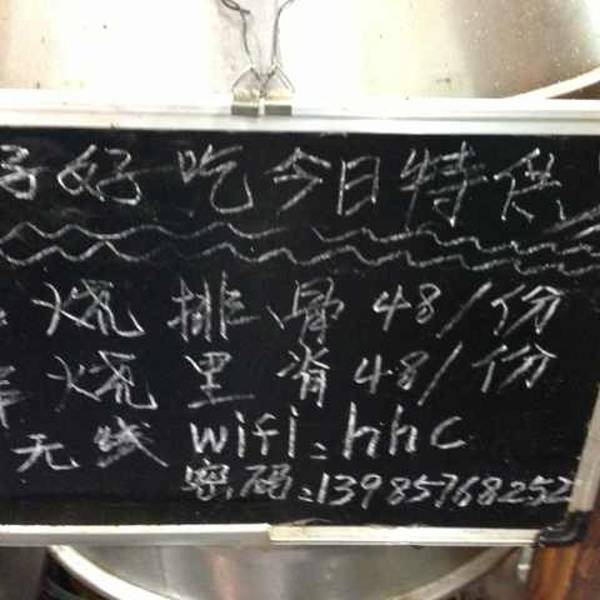 好好吃今日特供
烧排骨48/份
烧里脊48/份
无线wifi:hhc
密码:13985768252